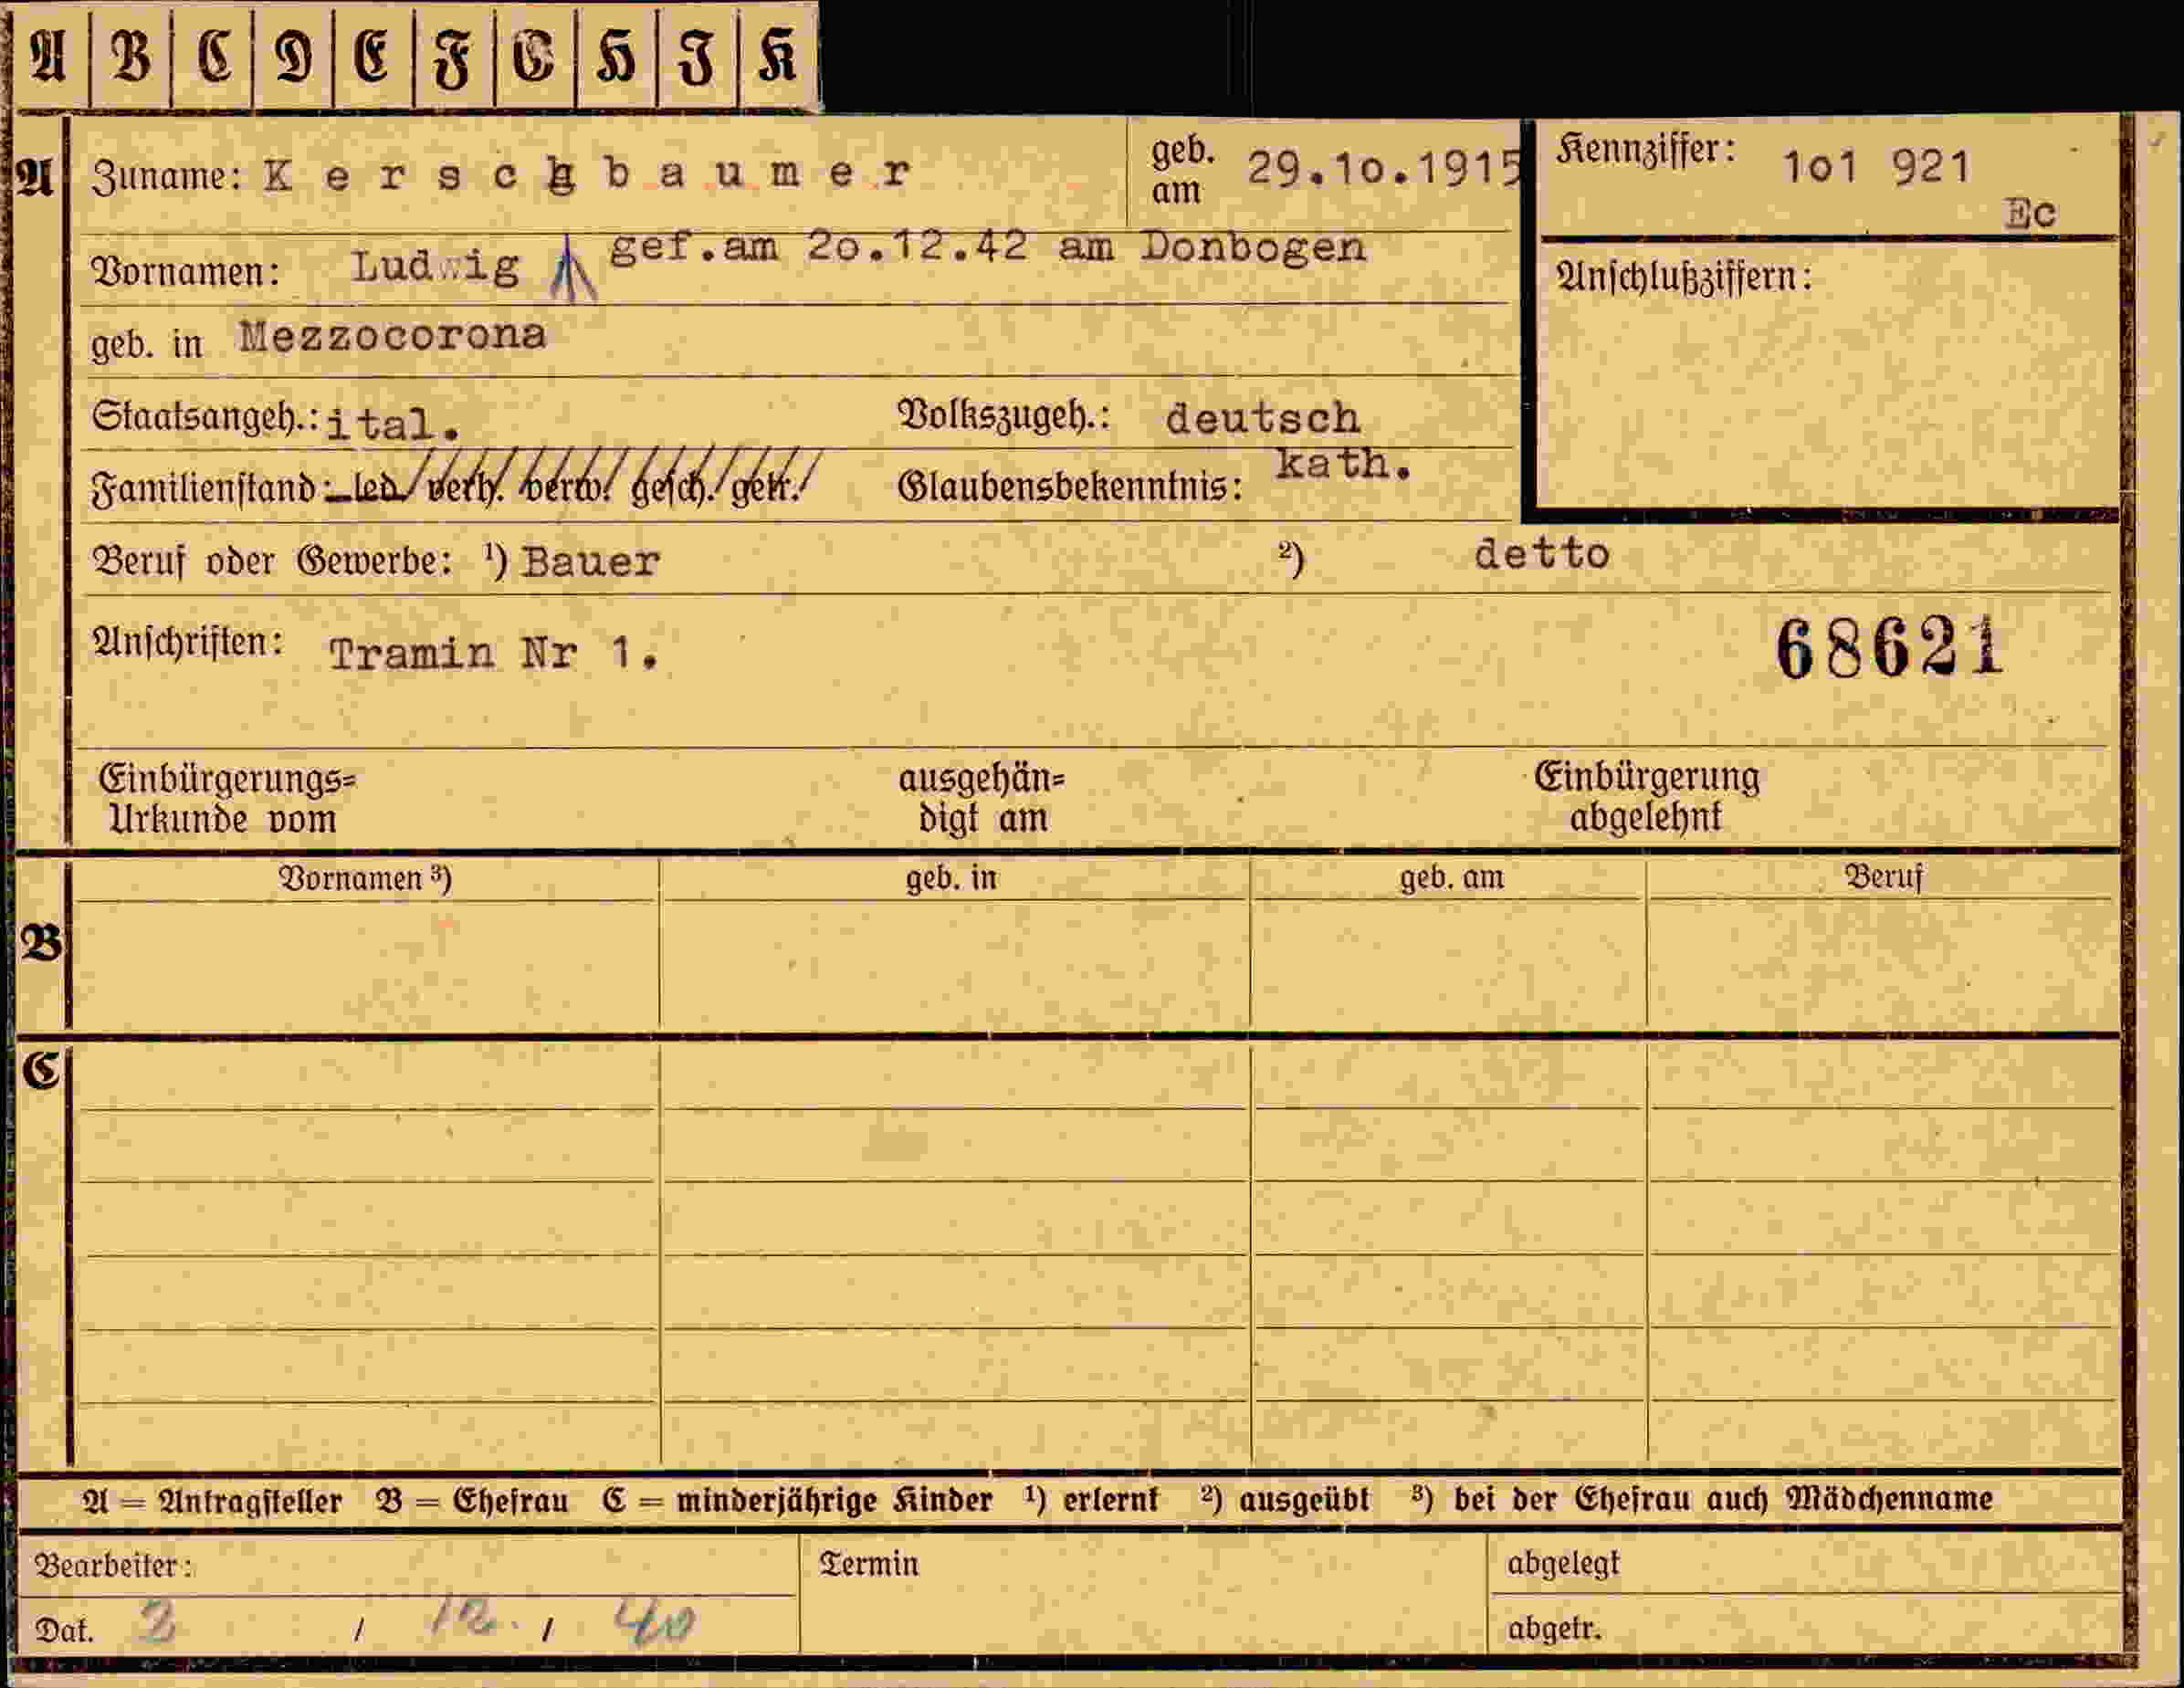 A B C D E F G H J K
A Zuname: Kerschbaumer geb. am 29.10.1915 Kennziffer: 1o1 921
Ec
Vornamen: Ludwig gef.am 2o.12.42 am Donbogen
Anschlußziffern:
geb. in Mezzocorona
Staatsangeh.: ital. Volkszugeh.: deutsch
Familienstand: led. verh. verw. gesch. getr. Glaubensbekenntnis: kath.
Beruf oder Gewerbe: ¹) Bauer ²) detto
Anschriften: Tramin Nr 1. 68621
Einbürgerungs= ausgehän= Einbürgerung
Urkunde vom digt am abgelehnt
Vornamen ³) geb. in geb. am Beruf
B
C
A = Antragsteller B = Ehefrau C = minderjährige Kinder ¹) erlernt ²) ausgeübt ³) bei der Ehefrau auch Mädchenname
Bearbeiter: Termin abgelegt
Dat. 3 / 12. / 40 abgetr.